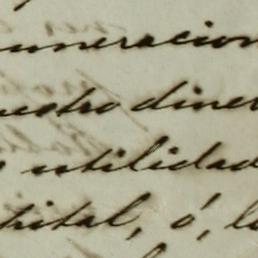 uneracion
uestro diner
utilidad
pital, ó, lo